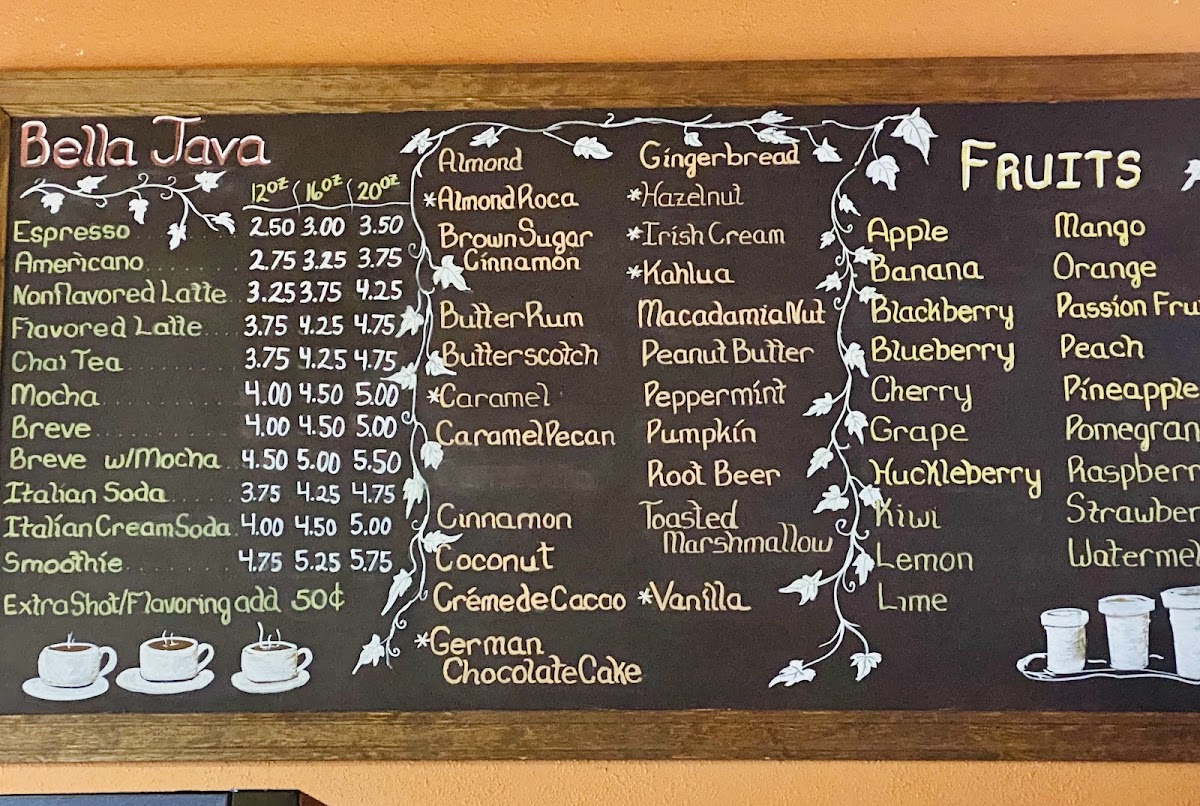 Bella Java
12oz 16oz 20oz
Espresso 2.50 3.00 3.50
Americano 2.75 3.25 3.75
Nonflavored Latte 3.25 3.75 4.25
Flavored Latte 3.75 4.25 4.75
Chai Tea 3.75 4.25 4.75
Mocha 4.00 4.50 5.00
Breve 4.00 4.50 5.00
Breve w/Mocha 4.50 5.00 5.50
Italian Soda 3.75 4.25 4.75
Italian Cream Soda 4.00 4.50 5.00
Smoothie 4.75 5.25 5.75
Extra Shot/Flavoring add 50¢
Almond
*Almond Roca
Brown Sugar
Cinnamon
Butter Rum
Butterscotch
*Caramel
Caramel Pecan
Cinnamon
Coconut
Créme de Cacao
*German
Chocolate Cake
Gingerbread
*Hazelnut
*Irish Cream
*Kahlua
Macadamia Nut
Peanut Butter
Peppermint
Pumpkin
Root Beer
Toasted
Marshmallow
*Vanilla
FRUITS
Apple
Banana
Blackberry
Blueberry
Cherry
Grape
Huckleberry
Kiwi
Lemon
Lime
Mango
Orange
Passion Fru
Peach
Pineapple
Pomegran
Raspberr
Strawber
Watermel